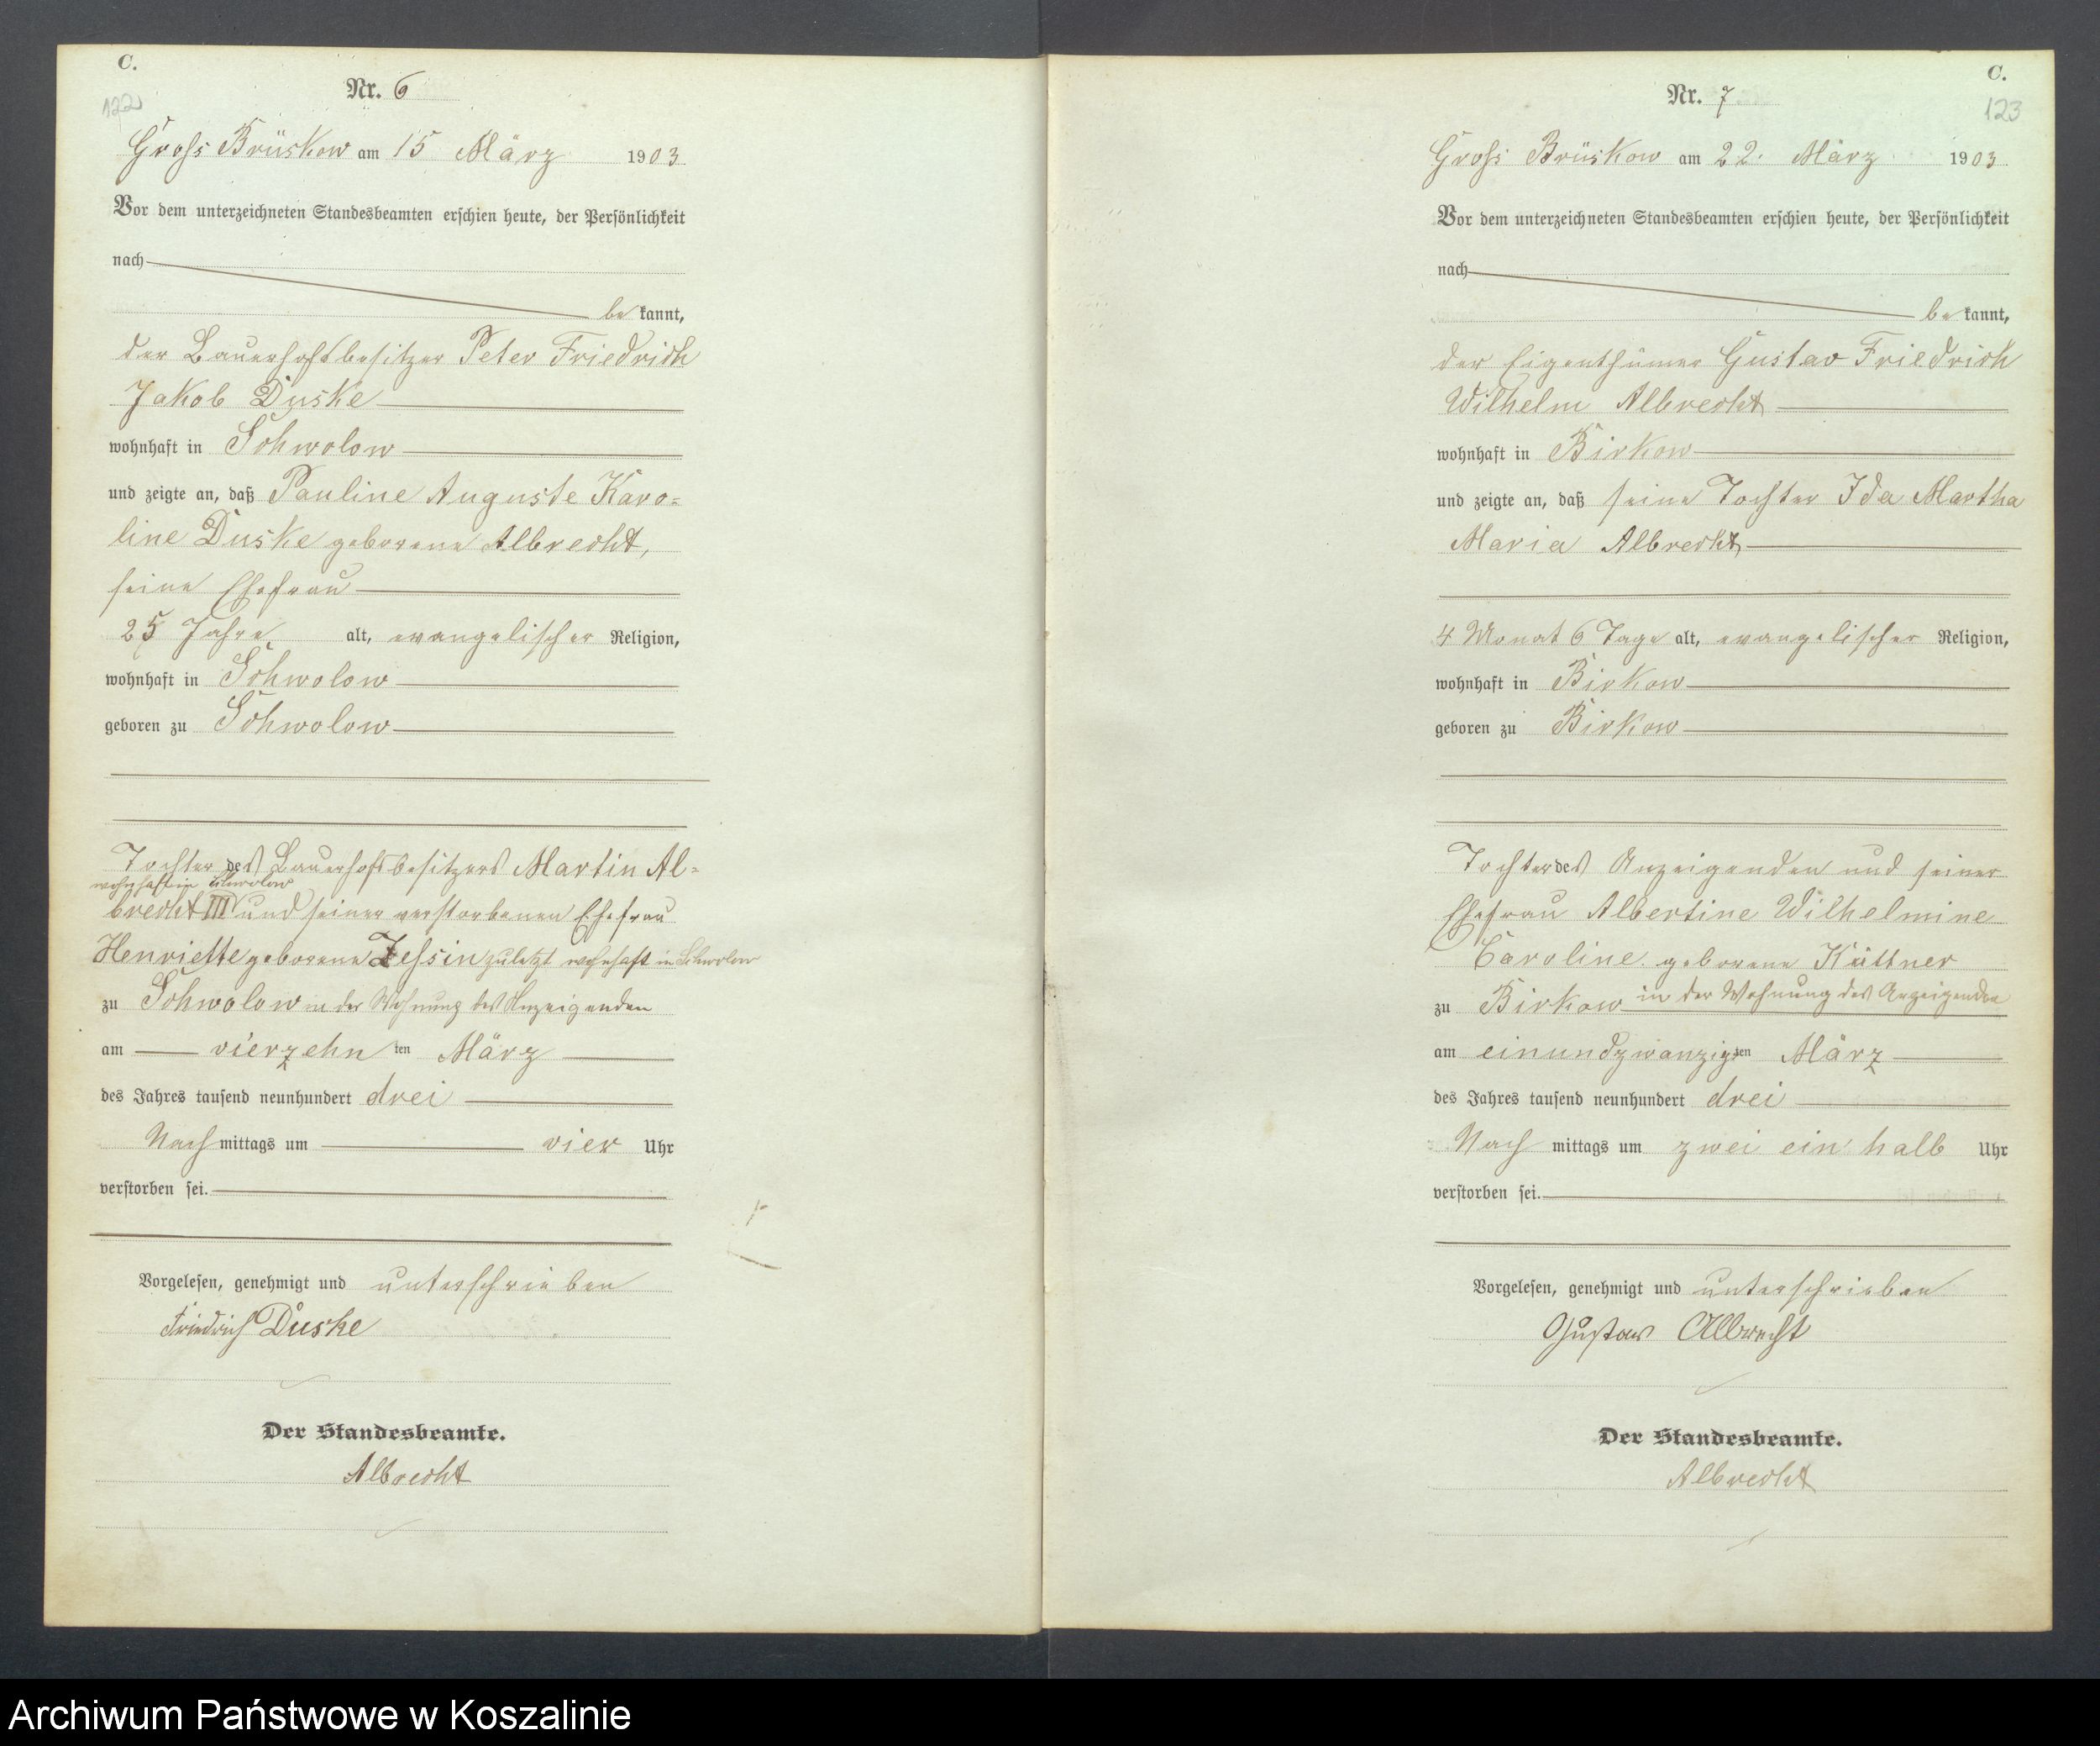 C.
122
Nr. 6
Gross Brüskow am 15 März 1903
Vor dem unterzeichneten Standesbeamten erschien heute, der Persönlichkeit
nach
be kannt,
der Bauerhofsbesitzer Peter Friedrich
Jakob Duske
wohnhaft in Schwolow
und zeigte an, daß Pauline Auguste Karo=
line Duske geborene Albrecht,
seine Ehefrau
25 Jahre alt, evangelischer Religion,
wohnhaft in Schwolow
geboren zu Schwolow
Tochter des Bauerhofsbesitzers Martin Al=
wohnhaft in Schwolow
brecht III und seiner verstorbenen Ehefrau
Henriette geborene Zessin zuletzt wohnhaft in Schwolow
zu Schwolow in der Wohnung des Anzeigenden
am vierzehn ten März
des Jahres tausend neunhundert drei
Nach mittags um vier Uhr
verstorben sei.
Vorgelesen, genehmigt und unterschrieben
Friedrich Duske
Der Standesbeamte.
Albrecht
C.
123
Nr. 7
Gross Brüskow am 22. März 1903
Vor dem unterzeichneten Standesbeamten erschien heute, der Persönlichkeit
nach
be kannt,
der Eigenthümer Gustav Friedrich
Wilhelm Albrecht
wohnhaft in Birkow
und zeigte an, daß seine Tochter Ida Martha
Maria Albrecht
4 Monat 6 Tage alt, evangelischer Religion,
wohnhaft in Birkow
geboren zu Birkow
Tochter des Anzeigenden und seiner
Ehefrau Albertine Wilhelmine
Caroline geborene Küttner
zu Birkow in der Wohnung des Anzeigenden
am einundzwanzigsten März
des Jahres tausend neunhundert drei
Nach mittags um zwei ein halb Uhr
verstorben sei.
Vorgelesen, genehmigt und unterschrieben
Gustav Albrecht
Der Standesbeamte.
Albrecht
Archiwum Państwowe w Koszalinie